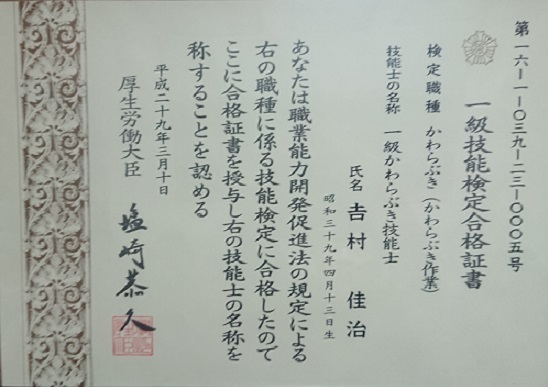 第一六-一-〇三九-二三-〇〇〇五号
一級技能検定合格証書
検定職種 かわらぶき(かわらぶき作業)
技能士の名称 一級かわらぶき技能士
氏名 𠮷村 佳治
昭和三十九年四月十三日生
あなたは職業能力開発促進法の規定による
右の職種に係る技能検定に合格したので
ここに合格証書を授与し右の技能士の名称を
称することを認める
平成二十九年三月十日
厚生労働大臣 塩崎恭久